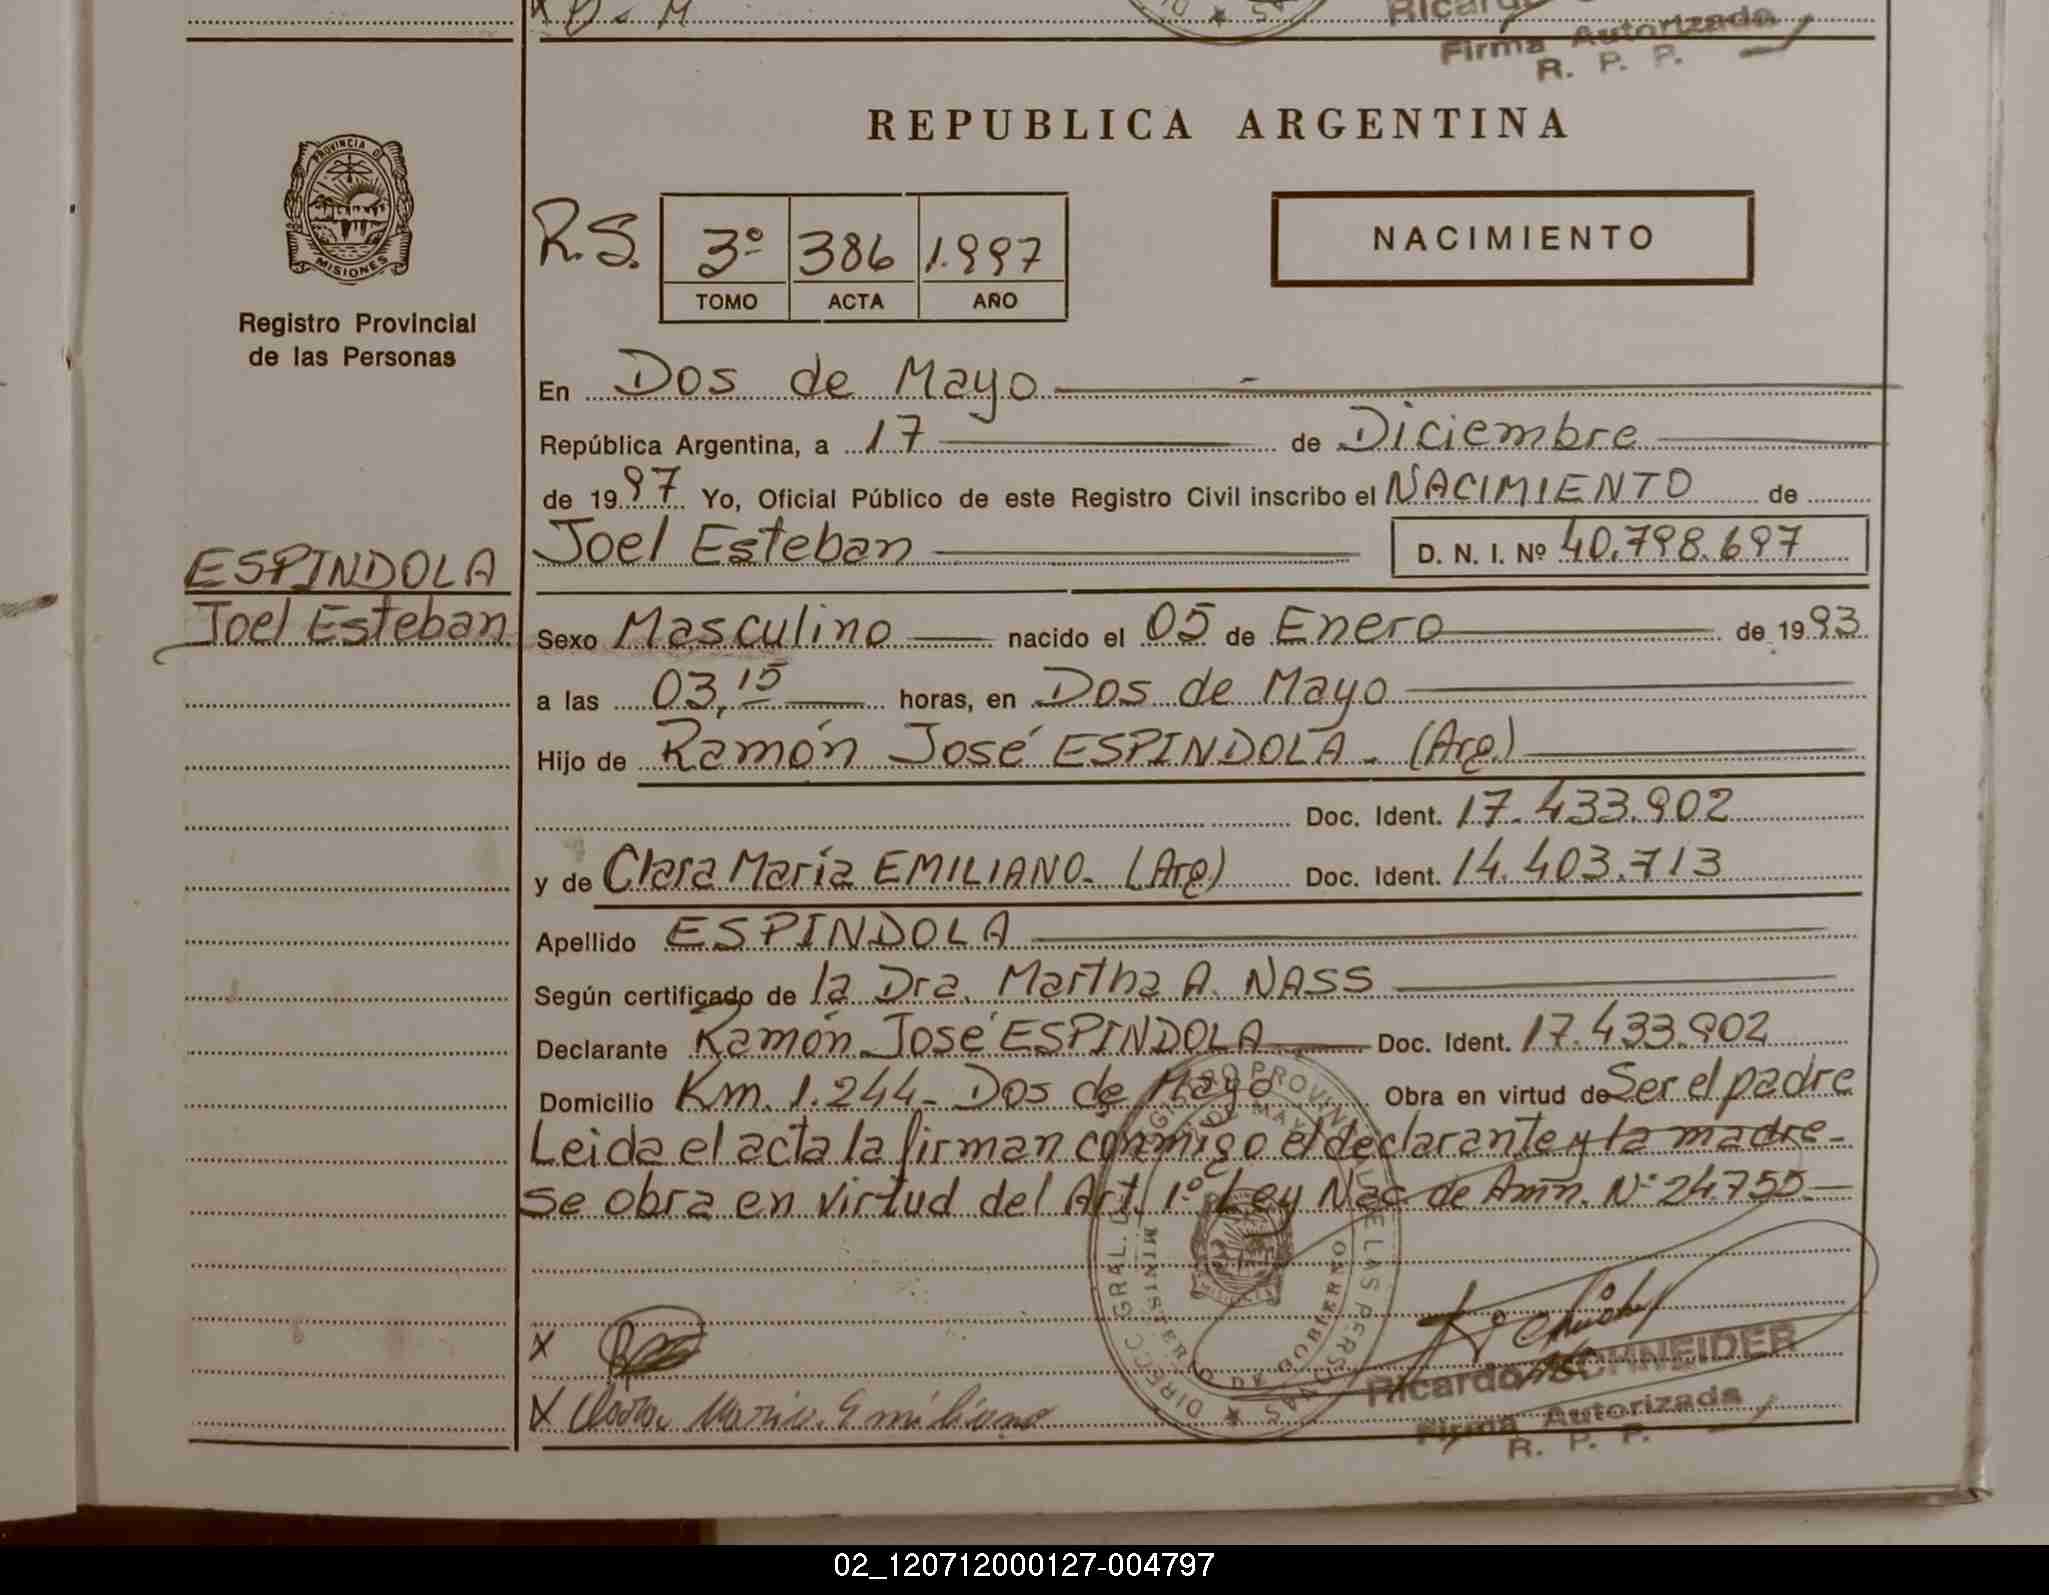 X
Ricardo
Firma Autorizada
R. P. P.
REPUBLICA ARGENTINA
PROVINCIA D
MISIONES
Registro Provincial
de las Personas
R.S.
3º 386 1.997
TOMO ACTA AÑO
NACIMIENTO
En Dos de Mayo
República Argentina, a 17 de Diciembre
de 1997 Yo, Oficial Público de este Registro Civil inscribo el NACIMIENTO de
Joel Esteban D. N. I. Nº 40.798.697
ESPINDOLA
Joel Esteban
Sexo Masculino nacido el 05 de Enero de 1993
a las 03,15 horas, en Dos de Mayo
Hijo de Ramón José ESPINDOLA. (Arg.)
Doc. Ident. 17.433.902
y de Clara María EMILIANO. (Arg) Doc. Ident. 14.403.713
Apellido ESPINDOLA
Según certificado de la Dra. Martha A. NASS
Declarante Ramón José ESPINDOLA Doc. Ident. 17.433.902
Domicilio Km. 1.244- Dos de Mayo Obra en virtud de Ser el padre
Leida el acta la firman conmigo el declarante y la madre-
se obra en virtud del Art. 1º Ley Nac de Amn. Nº 24.755.-
DIRECC. GRAL. REGISTRO PROVINCIAL DE LAS PERSONAS
DOS DE MAYO
MINISTERIO DE GOBIERNO
X
X Clara Maria Emiliano
Ricardo SCHNEIDER
Firma Autorizada
R. P. P.
02_120712000127-004797